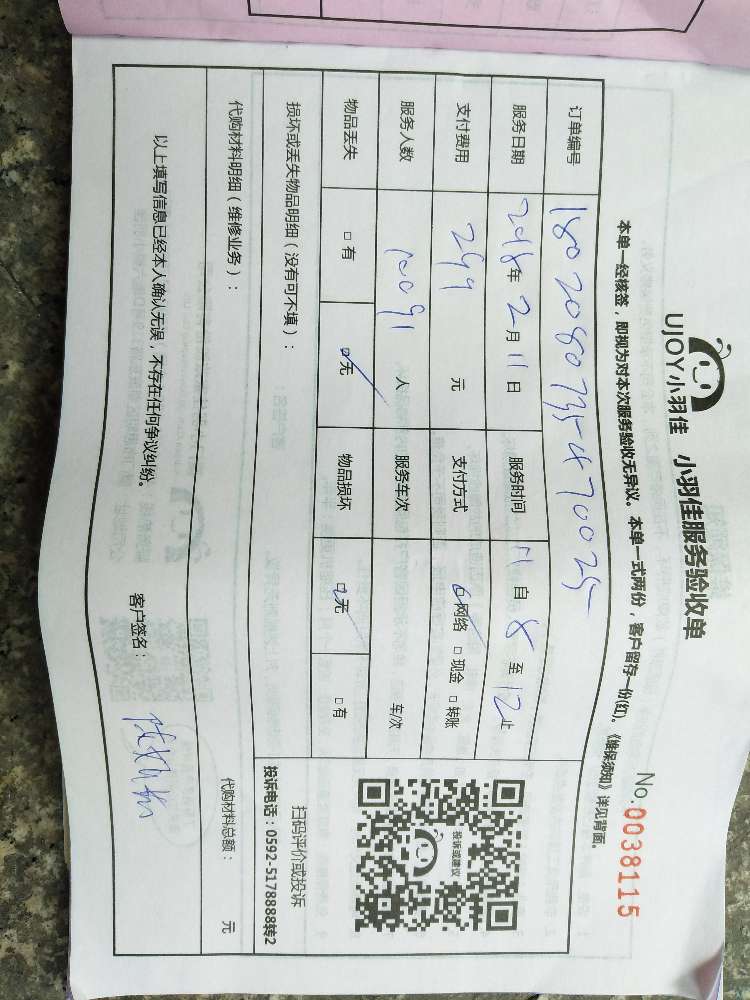 UJOY小羽佳 小羽佳服务验收单
No:0038115
本单一经核签，即视为对本次服务验收无异议。本单一式两份，客户留存一份(红)。《维保须知》详见背面。
订单编号
服务日期 2018年 2月 11日 服务时间 11 自 8 至 12止
支付费用 299 元 支付方式 □网络 □现金 □转账
服务人数 人 服务车次 车/次
物品丢失 □有 □无 物品损坏 □无 □有
损坏或丢失物品明细（没有可不填）：
投诉或建议
扫码评价或投诉
投诉电话：0592-5178888转2
代购材料明细（维修业务）： 代购材料总额： 元
以上填写信息已经本人确认无误，不存在任何争议纠纷。 客户签名：